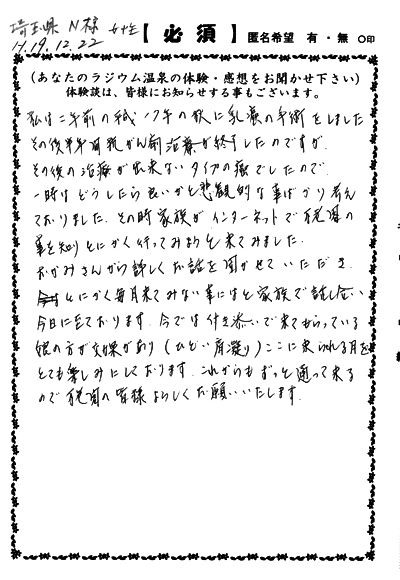 埼玉県 N様 女性
H.19.12.22
【必須】 匿名希望 有・無 ○印
(あなたのラジウム温泉の体験・感想をお聞かせ下さい)
体験談は、皆様にお知らせする事もございます。
私は二年前の 17年の秋に乳癌の手術をしました
その後半年間抗がん剤治療が終了したのですが、
その後の治療が出来ないタイプの癌でしたので、
一時はどうしたら良いかと悲観的な事ばかり考え
ておりました。その時家族がインターネットで の
事を知りとにかく行ってみようと来てみました。
おかみさんから詳しくお話を聞かせていただき、
とにかく毎月来てみない事にはと家族で話し合い
今日に至っております。今では付き添いで来てもらっている
娘の方が効果があり(ひどい肩凝り)ここに来られる月を
とても楽しみにしております。これからもずっと通って来る
ので の皆様よろしくお願いいたします。